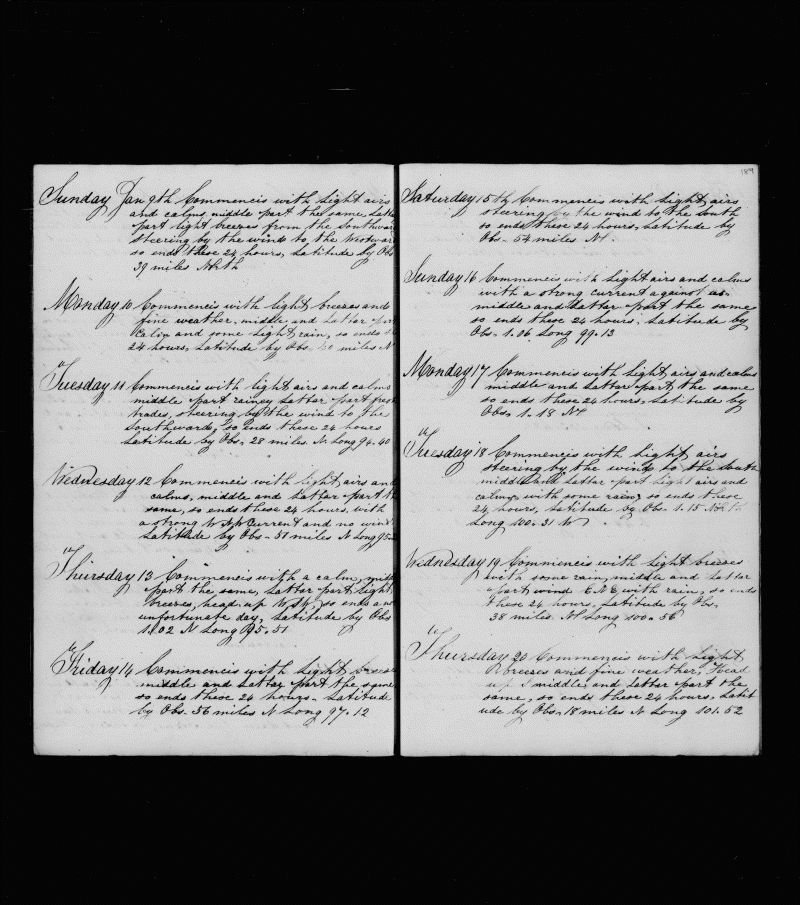 Sunday Jan 9th Commencis with light airs
and calms, middle part the same, Latter
part light breezes from the southward
steering by the wind to the Westward
so ends these 24 hours, Latitude by Obs
39 miles North
Monday 10 Commencis with light breezes and
fine weather, middle and Latter part
Calm and some light rain, so ends
24 hours, Latitude by Obs. miles N
Tuesday 11 Commencis with light airs and calms
middle part rainey Latter part fresh
trades, steering by the wind to the
Southward, so ends these 24 hours
Latitude by Obs. 28 miles N Long 94.40
Wednesday 12 Commencis with light airs and
calms, middle and Latter part the
same, so ends these 24 hours, with
a strong current and no wind
Latitude by Obs. 51 miles N Long 95.
Thursday 13 Commencis with a calm, middle
part the same, Latter part light
breezes, head up W.S.W., so ends an
unfortunate day, Latitude by Obs
1.02 N Long 95.51
Friday 14 Commencis with light breezes
middle and Latter part the same
so ends these 24 hours. Latitude
by Obs. 56 miles N Long 97.12
189
Saturday 15th Commencis with light airs
steering by the wind to the South
so ends these 24 hours, Latitude by
Obs. 54 miles N
Sunday 16 Commencis with light airs and calms
with a strong current against us
middle and Latter part the same
so ends these 24 hours. Latitude by
Obs. 1.06 Long 99.13
Monday 17 Commencis with light airs and calms
middle and Latter part the same
so ends these 24 hours. Latitude by
Obs. 1.13 N
Tuesday 18 Commencis with light airs
steering by the wind to the South
middle and Latter part light airs and
calms, with some rain, so ends these
24 hours, Latitude by Obs. 1.15 North
Long 100.31 W
Wednesday 19 Commencis with light breezes
with some rain, middle and Latter
part wind E.N.E with rain, so ends
these 24 hours. Latitude by Obs,
38 miles N Long 100.56
Thursday 20 Commencis with light
breezes and fine weather, Head
up S middle and Latter part the
same, so ends these 24 hours. Latit
ude by Obs. 18 miles N Long 101.52